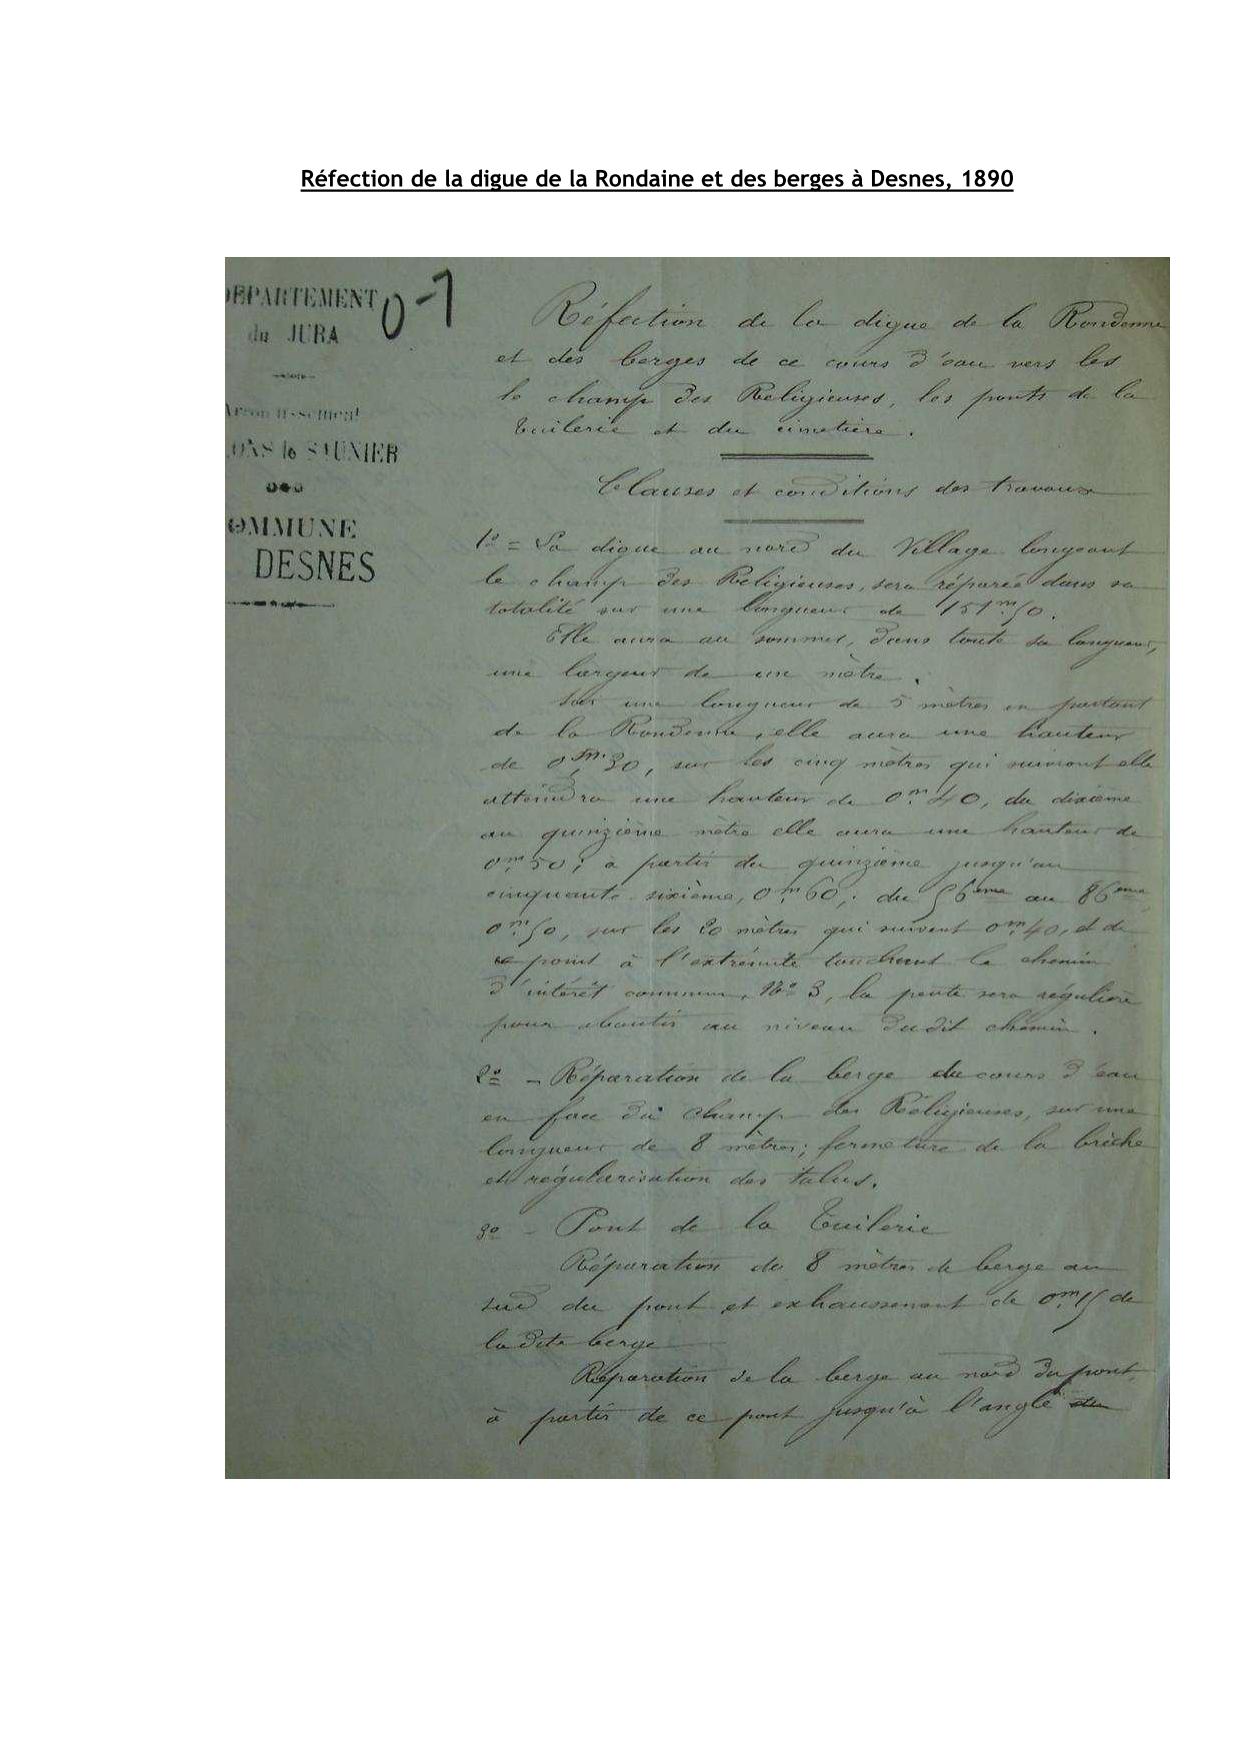 Réfection de la digue de la Rondaine et des berges à Desnes, 1890
DÉPARTEMENT
du JURA
0-7
Arrondissement
LONS le SAUNIER
COMMUNE
DESNES
Réfection de la digue de la Rondenne
et des berges de ce cours d'eau vers les
le champ des Religieuses, les ponts de la
Tuilerie et du cimetière.
Clauses et conditions des travaux
1º = La digue au nord du Village longeant
le champ des Religieuses, sera réparée dans sa
totalité sur une longueur de 151m,50.
Elle aura au sommet, dans toute sa longueur,
une largeur de un mètre.
Sur une longueur de 5 mètres en partant
de la Rondenne, elle aura une hauteur
de 0,m30, sur les cinq mètres qui suivront elle
atteindra une hauteur de 0m,40, du dixième
au quinzième mètre elle aura une hauteur de
0m,50; a partir du quinzième jusqu'au
cinquante sixième, 0m,60; du 56eme au 86eme
0m,50, sur les 20 mètres qui suivent 0m,40, et de
ce point à l'extrémité touchant le chemin
d'intérêt commun, Nº 3, la pente sera régulière
pour aboutir au niveau dudit chemin.
2º - Réparation de la berge du cours d'eau
en face du champ des Religieuses, sur une
longueur de 8 mètres; fermeture de la brèche
et régularisation des talus.
3º - Pont de la Tuilerie
Réparation de 8 mètres de berge au
sud du pont et exhaussement de 0m,15 de
la dite berge
Réparation de la berge au nord du pont,
à partir de ce pont jusqu'à l'angle